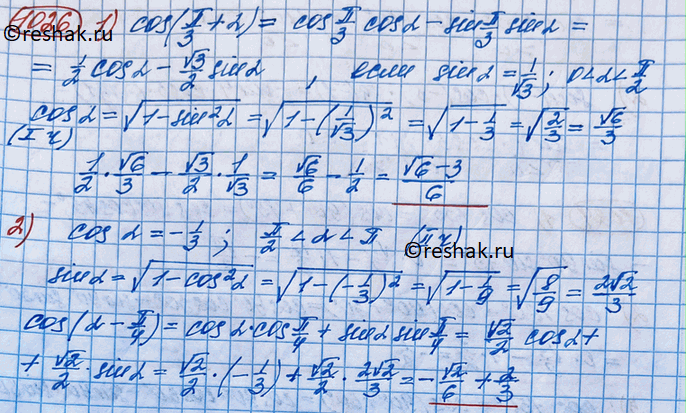 1026 1) cos(π/3 + α) = cos π/3 cos α − sin π/3 sin α =
= 1/2 cos α − √3/2 sin α, если sin α = 1/√3; 0 < α < π/2
cos α = √(1 − sin²α) = √(1 − (1/√3)²) = √(1 − 1/3) = √(2/3) = √6/3
(I ч)
1/2 · √6/3 − √3/2 · 1/√3 = √6/6 − 1/2 = (√6 − 3)/6
©reshak.ru
2) cos α = −1/3; π/2 < α < π (II ч)
©reshak.ru
sin α = √(1 − cos²α) = √(1 − (−1/3)²) = √(1 − 1/9) = √(8/9) = 2√2/3
cos(α − π/4) = cos α · cos π/4 + sin α sin π/4 = √2/2 cos α +
+ √2/2 · sin α = √2/2 · (−1/3) + √2/2 · 2√2/3 = −√2/6 + 2/3